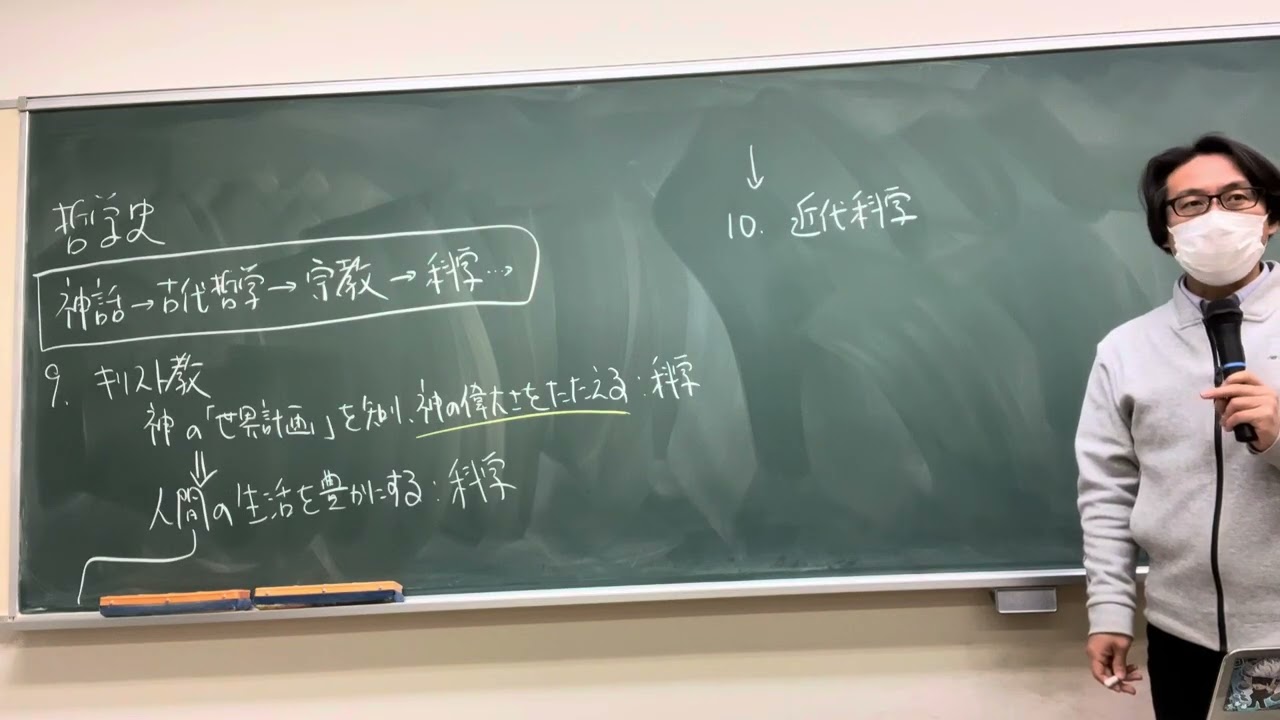 哲学史
神話→古代哲学→宗教→科学…>
9. キリスト教
神の「世界計画」を知り、神の偉大さをたたえる:科学
⇓
人間の生活を豊かにする:科学
↓
10. 近代科学